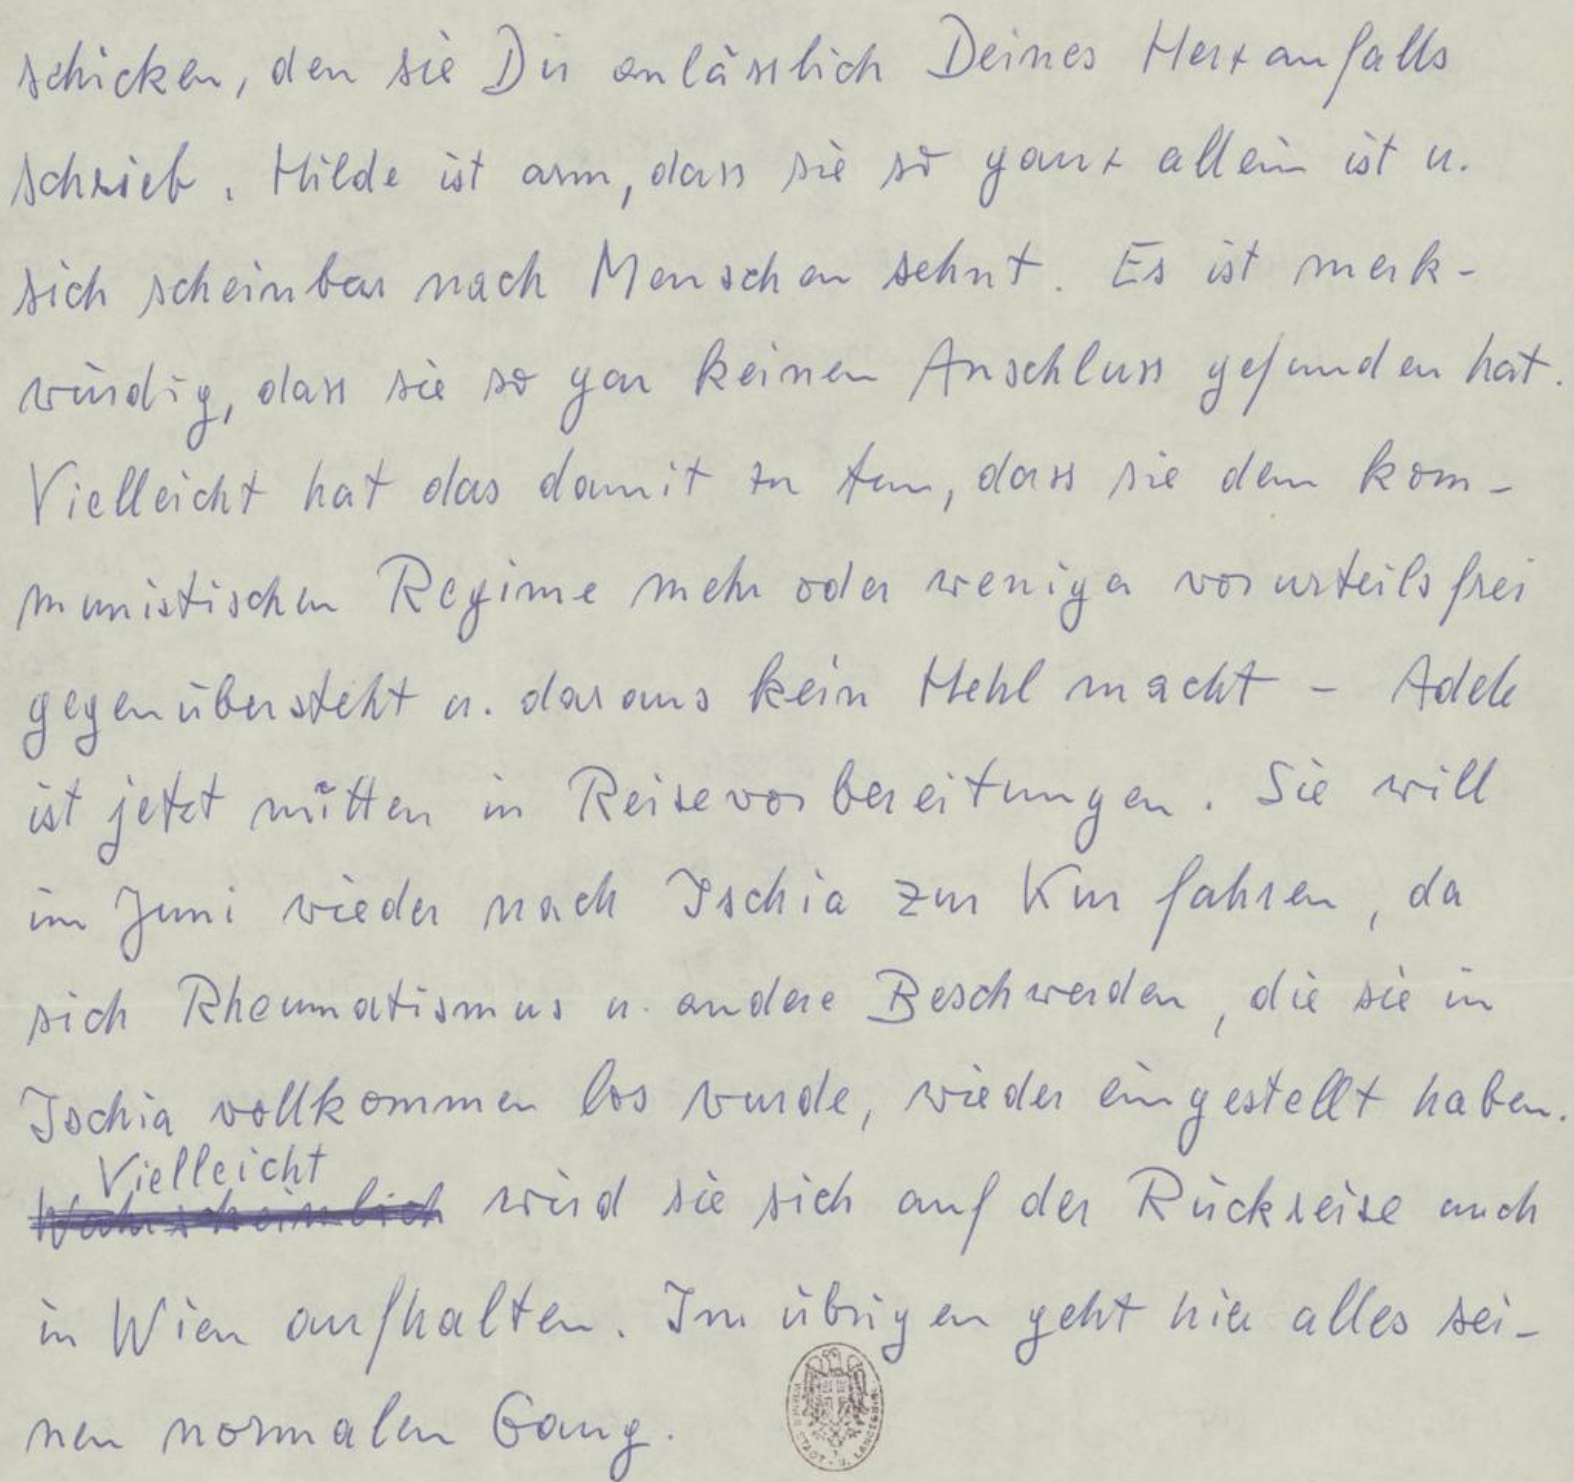 schicken, den sie Dir anlässlich Deines Herzanfalls
schrieb. Hilde ist arm, dass sie so ganz allein ist u.
sich scheinbar nach Menschen sehnt. Es ist merk-
würdig, dass sie so gar keinen Anschluss gefunden hat.
Vielleicht hat das damit zu tun, dass sie dem kom-
munistischen Regime mehr oder weniger vorurteilsfrei
gegenübersteht u. daraus kein Hehl macht – Adele
ist jetzt mitten in Reisevorbereitungen. Sie will
im Juni wieder nach Ischia zur Kur fahren, da
sich Rheumatismus u. andere Beschwerden, die sie in
Ischia vollkommen los wurde, wieder eingestellt haben.
Vielleicht
Wahrscheinlich wird sie sich auf der Rückreise auch
in Wien aufhalten. Im übrigen geht hier alles sei-
nen normalen Gang.